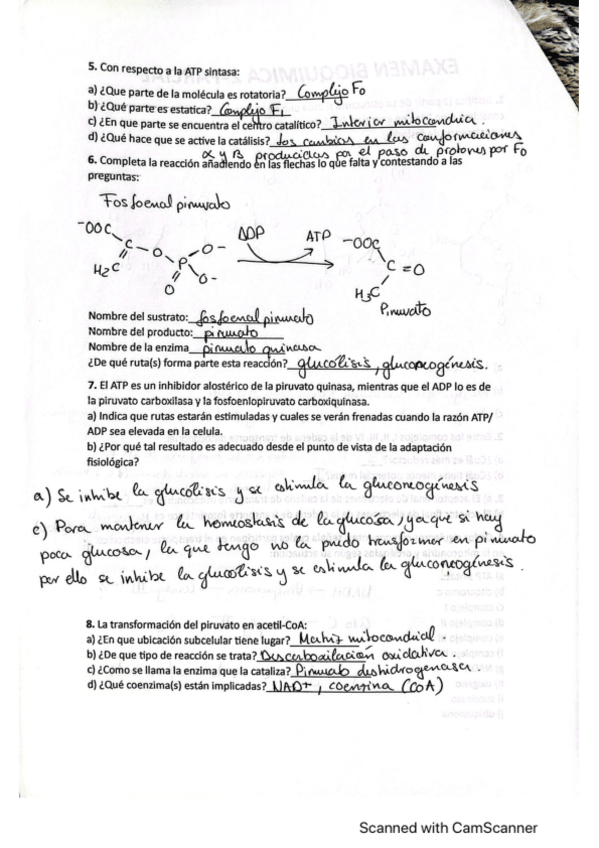 5. Con respecto a la ATP sintasa:
a) ¿Que parte de la molécula es rotatoria? Complejo Fo
b) ¿Qué parte es estatica? Complejo F1
c) ¿En que parte se encuentra el centro catalítico? Interior mitocondria.
d) ¿Qué hace que se active la catálisis? Los cambios en las conformaciones
α y β producidas por el paso de protones por Fo
6. Completa la reacción añadiendo en las flechas lo que falta y contestando a las
preguntas:
Fosfoenol piruvato
⁻OOC C O P O⁻ O⁻ O H2C
ADP ATP
⁻OOC C = O H3C
Piruvato
Nombre del sustrato: fosfoenol piruvato
Nombre del producto: piruvato
Nombre de la enzima piruvato quinasa
¿De qué ruta(s) forma parte esta reacción? glucólisis, gluconeogénesis.
7. El ATP es un inhibidor alostérico de la piruvato quinasa, mientras que el ADP lo es de
la piruvato carboxilasa y la fosfoenlopiruvato carboxiquinasa.
a) Indica que rutas estarán estimuladas y cuales se verán frenadas cuando la razón ATP/
ADP sea elevada en la celula.
b) ¿Por qué tal resultado es adecuado desde el punto de vista de la adaptación
fisiológica?
a) Se inhibe la glucolisis y se estimula la gluconeogénesis
c) Para mantener la homeostasis de la glucosa, ya que si hay
poca glucosa, la que tengo no la puedo transformar en piruvato
por ello se inhibe la glucólisis y se estimula la gluconeogénesis.
8. La transformación del piruvato en acetil-CoA:
a) ¿En que ubicación subcelular tiene lugar? Matriz mitocondrial.
b) ¿De que tipo de reacción se trata? Descarboxilación oxidativa.
c) ¿Como se llama la enzima que la cataliza? Piruvato deshidrogenasa.
d) ¿Qué coenzima(s) están implicadas? NAD+, coenzima (CoA)
Scanned with CamScanner